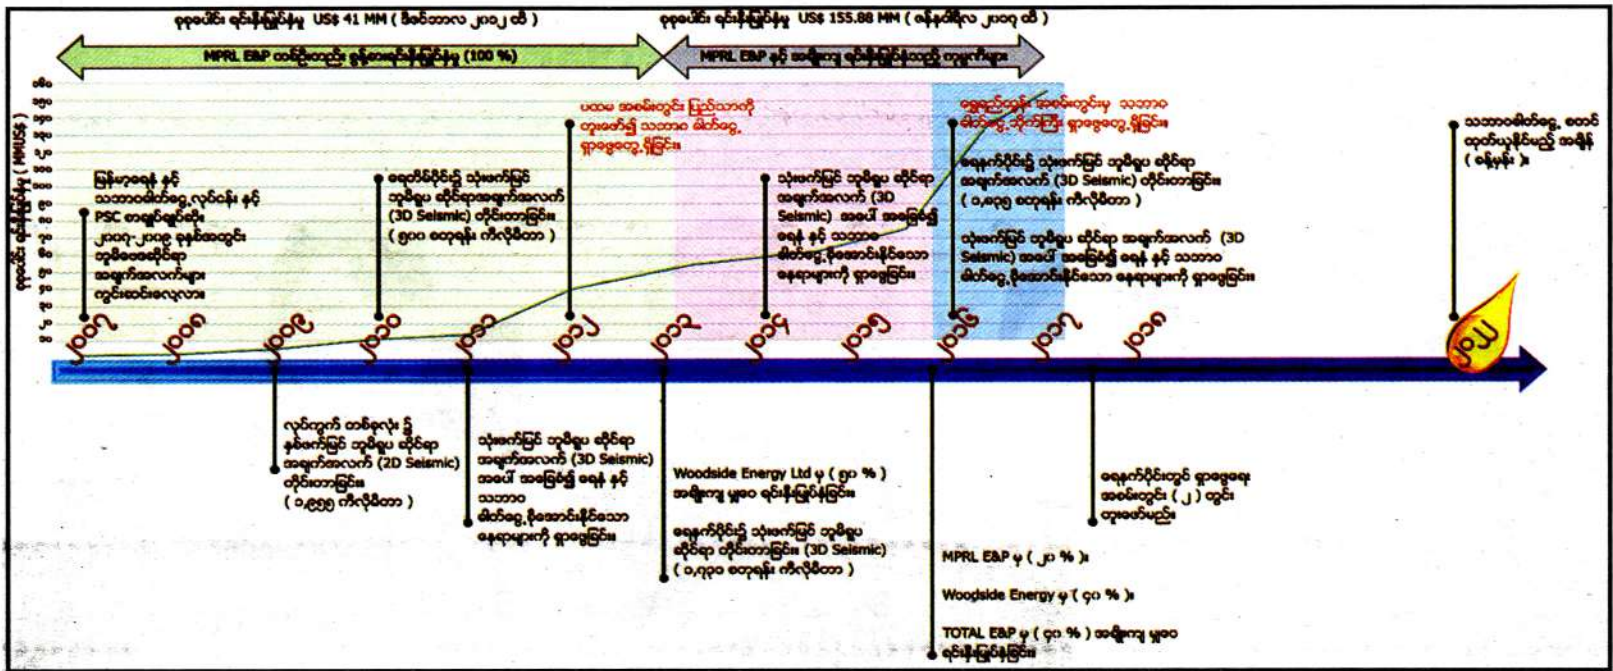 စုစုပေါင်း ရင်းနှီးမြှုပ်နှံမှု US$ 41 MM ( ဒီဇင်ဘာလ ၂၀၁၂ ထိ )
စုစုပေါင်း ရင်းနှီးမြှုပ်နှံမှု US$ 155.88 MM ( ဇန်နဝါရီလ ၂၀၁၇ ထိ )
MPRL E&P တစ်ဦးတည်း စွန့်စားရင်းနှီးမြှုပ်နှံမှု (100 %)
MPRL E&P နှင့် အကျိုးတူ ရင်းနှီးမြှုပ်နှံသည့် ကုမ္ပဏီများ
စုစုပေါင်း ရင်းနှီးမြှုပ်နှံမှု ( MMUS$ )
မြန်မာ့ရေနံ နှင့်
သဘာဝဓါတ်ငွေ့လုပ်ငန်း နှင့်
PSC စာချုပ်ချုပ်ဆို။
၂၀၀၇-၂၀၀၉ ခုနှစ်အတွင်း
ဘူမိဗေဒဆိုင်ရာ
အချက်အလက်များ
ကွင်းဆင်းလေ့လာ။
ရေတိမ်ပိုင်း၌ သုံးဖက်မြင်
ဘူမိရူပ ဆိုင်ရာအချက်အလက်
(3D Seismic) တိုင်းတာခြင်း။
( ၅၀၀ စတုရန်း ကီလိုမီတာ )
ပထမ အစမ်းတွင်း ပြည်သာကို
တူးဖော်၍ သဘာဝ ဓါတ်ငွေ့
ရှာဖွေတွေ့ရှိခြင်း။
သုံးဖက်မြင် ဘူမိရူပ ဆိုင်ရာ
အချက်အလက် (3D
Seismic) အပေါ် အခြေခံ၍
ရေနံ နှင့် သဘာဝ
ဓါတ်ငွေ့ခိုအောင်းနိုင်သော
နေရာများကို ရှာဖွေခြင်း။
ရွှေရည်ထွန်း အစမ်းတွင်းမှ သဘာဝ
ဓါတ်ငွေ့ သိုက်ကြီး ရှာဖွေတွေ့ရှိခြင်း။
ရေနက်ပိုင်း၌ သုံးဖက်မြင် ဘူမိရူပ ဆိုင်ရာ
အချက်အလက် (3D Seismic) တိုင်းတာခြင်း။
( ၁,၈၃၅ စတုရန်း ကီလိုမီတာ )
သုံးဖက်မြင် ဘူမိရူပ ဆိုင်ရာ အချက်အလက် (3D
Seismic) အပေါ် အခြေခံ၍ ရေနံ နှင့် သဘာဝ
ဓါတ်ငွေ့ခိုအောင်းနိုင်သော နေရာများကို ရှာဖွေခြင်း။
သဘာဝဓါတ်ငွေ့ စတင်
ထုတ်ယူနိုင်မည့် အချိန်
( ခန့်မှန်း )။
၂၀၀၇ ၂၀၀၈ ၂၀၀၉ ၂၀၁၀ ၂၀၁၁ ၂၀၁၂ ၂၀၁၃ ၂၀၁၄ ၂၀၁၅ ၂၀၁၆ ၂၀၁၇ ၂၀၁၈ ၂၀၂၂
လုပ်ကွက် တစ်ခုလုံး ၌
နှစ်ဖက်မြင် ဘူမိရူပ ဆိုင်ရာ
အချက်အလက် (2D Seismic)
တိုင်းတာခြင်း။
( ၁,၉၅၅ ကီလိုမီတာ )
သုံးဖက်မြင် ဘူမိရူပ ဆိုင်ရာ
အချက်အလက် (3D Seismic)
အပေါ် အခြေခံ၍ ရေနံ နှင့်
သဘာဝ
ဓါတ်ငွေ့ခိုအောင်းနိုင်သော
နေရာများကို ရှာဖွေခြင်း။
Woodside Energy Ltd မှ ( ၅၀ % )
အကျိုးတူ မျှဝေ ရင်းနှီးမြှုပ်နှံခြင်း။
ရေနက်ပိုင်း၌ သုံးဖက်မြင် ဘူမိရူပ
ဆိုင်ရာ တိုင်းတာခြင်း။ (3D Seismic)
( ၁,၇၃၁ စတုရန်း ကီလိုမီတာ )
ရေနက်ပိုင်းတွင် ရှာဖွေရေး
အစမ်းတွင်း ( ၂ ) တွင်း
တူးဖော်မည်။
MPRL E&P မှ ( ၂၀ % )။
Woodside Energy မှ ( ၄၀ % )။
TOTAL E&P မှ ( ၄၀ % ) အကျိုးတူ မျှဝေ
ရင်းနှီးမြှုပ်နှံခြင်း။